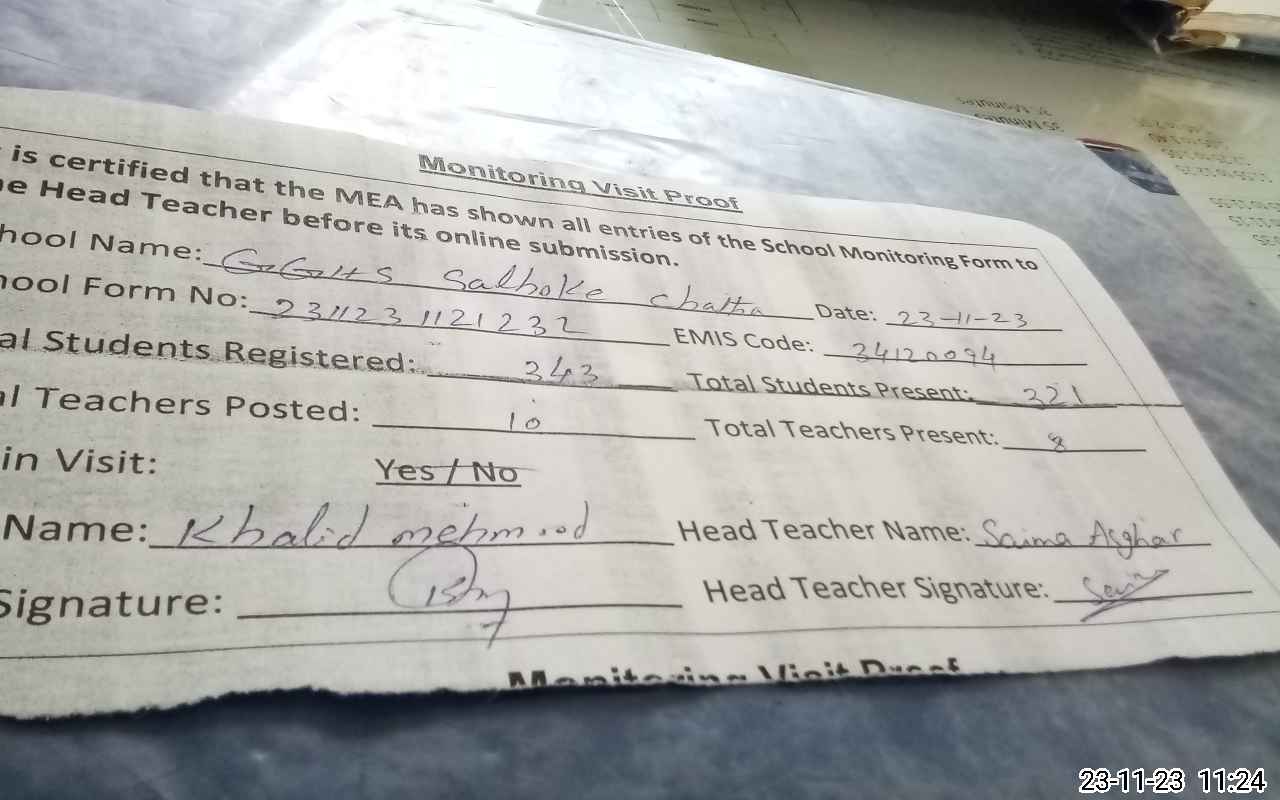 Monitoring Visit Proof
is certified that the MEA has shown all entries of the School Monitoring Form to
e Head Teacher before its online submission.
hool Name: GGHS Salhoke Chattha Date: 23-11-23
hool Form No: 231123 1121232 EMIS Code: 34120094
al Students Registered: 343 Total Students Present: 321
al Teachers Posted: 10 Total Teachers Present: 8
in Visit: Yes / No
Name: Khalid mehmood Head Teacher Name: Saima Asghar
Signature: Head Teacher Signature:
Monitoring Visit Proof
23-11-23 11:24